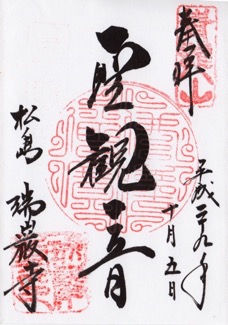 奉拝
平成二十九年
十月五日
聖観音
松島 瑞巌寺